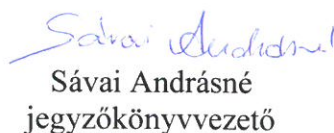 Sávai Andrásné
Sávai Andrásné
jegyzőkönyvvezető